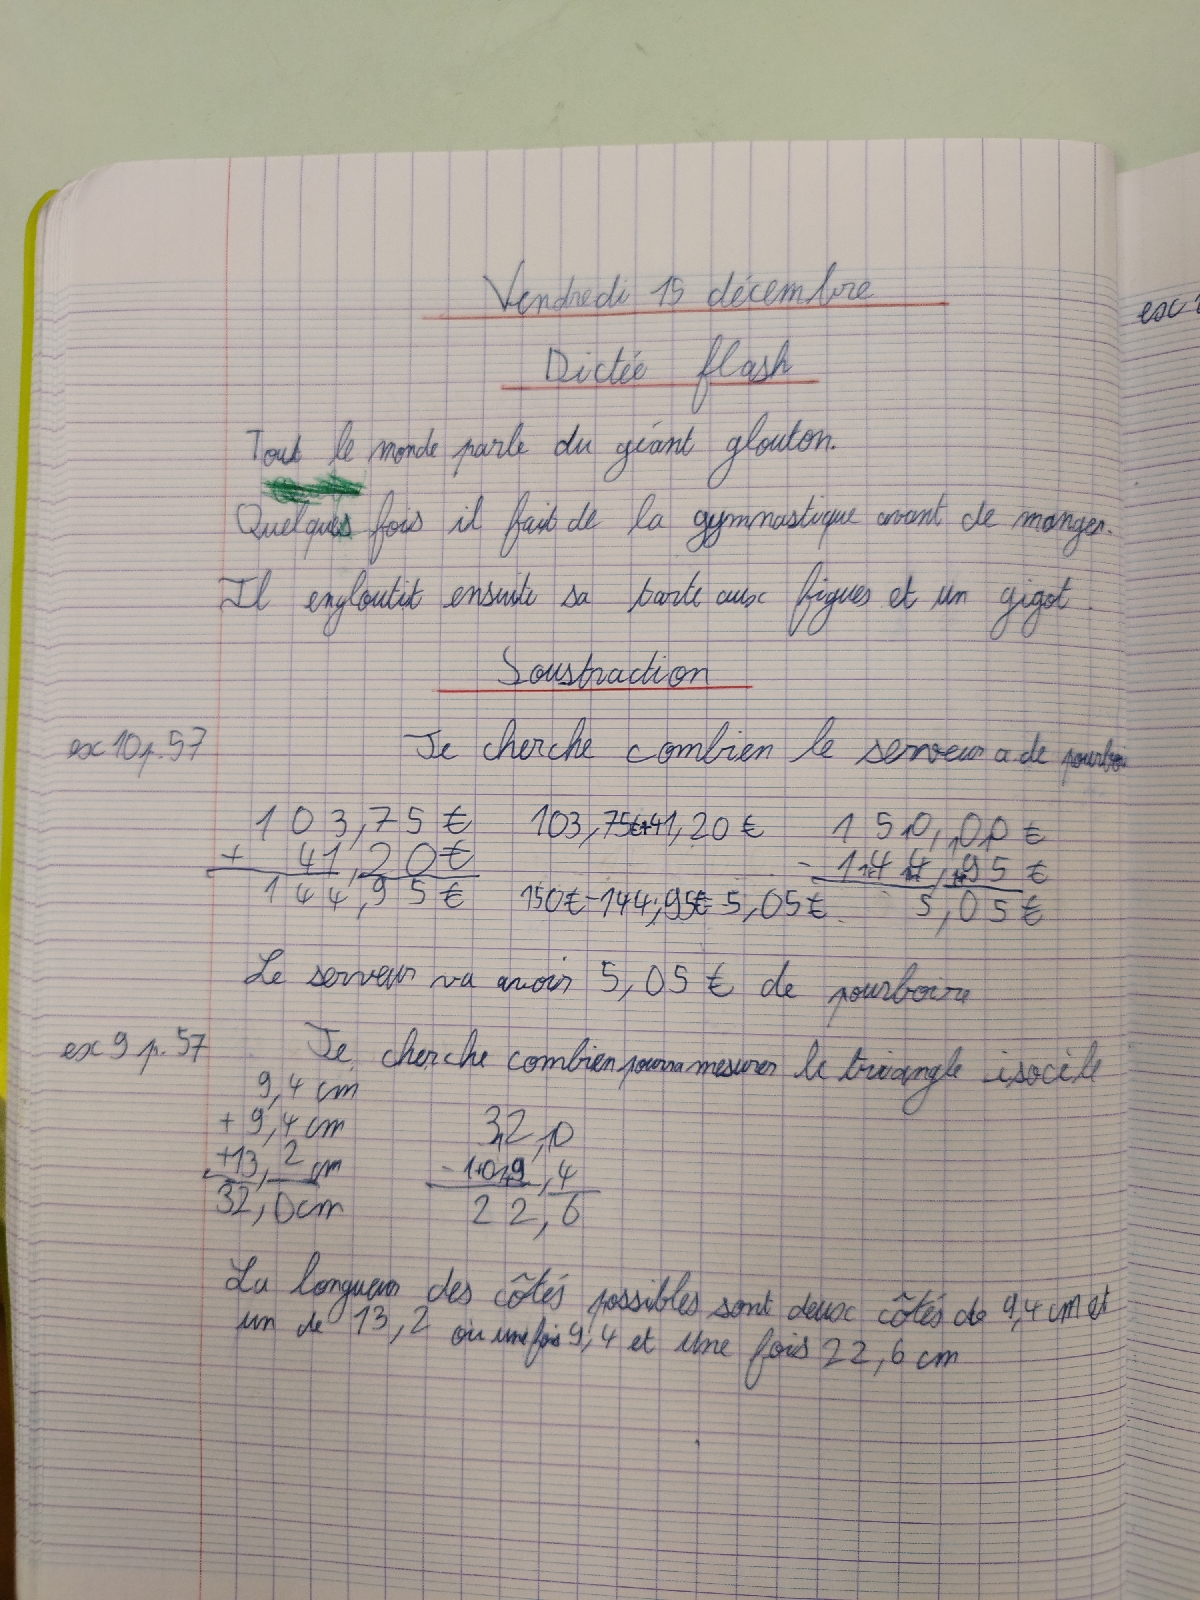 Vendredi 15 décembre
Dictée flash
Tout le monde parle du géant glouton.
Quelques fois il fait de la gymnastique avant de manger.
Il engloutit ensuite sa tarte aux figues et un gigot.
Soustraction
ex 10 p. 57 Je cherche combien le serveur a de pourboi
103,75 € 103,75€+41,20 € 150,00 €
+ 41,20 € - 144,95 €
144,95 € 150€-144,95€=5,05€. 5,05 €
Le serveur va avoir 5,05 € de pourboire
ex 9 p. 57 Je cherche combien pourra mesurer le triangle isocèle
9,4 cm
+ 9,4 cm 32,0
+13,2 cm - 09,4
32,0cm 22,6
La longueur des côtés possibles sont deux côtés de 9,4 cm et
un de 13,2 ou une fois 9,4 et une fois 22,6 cm